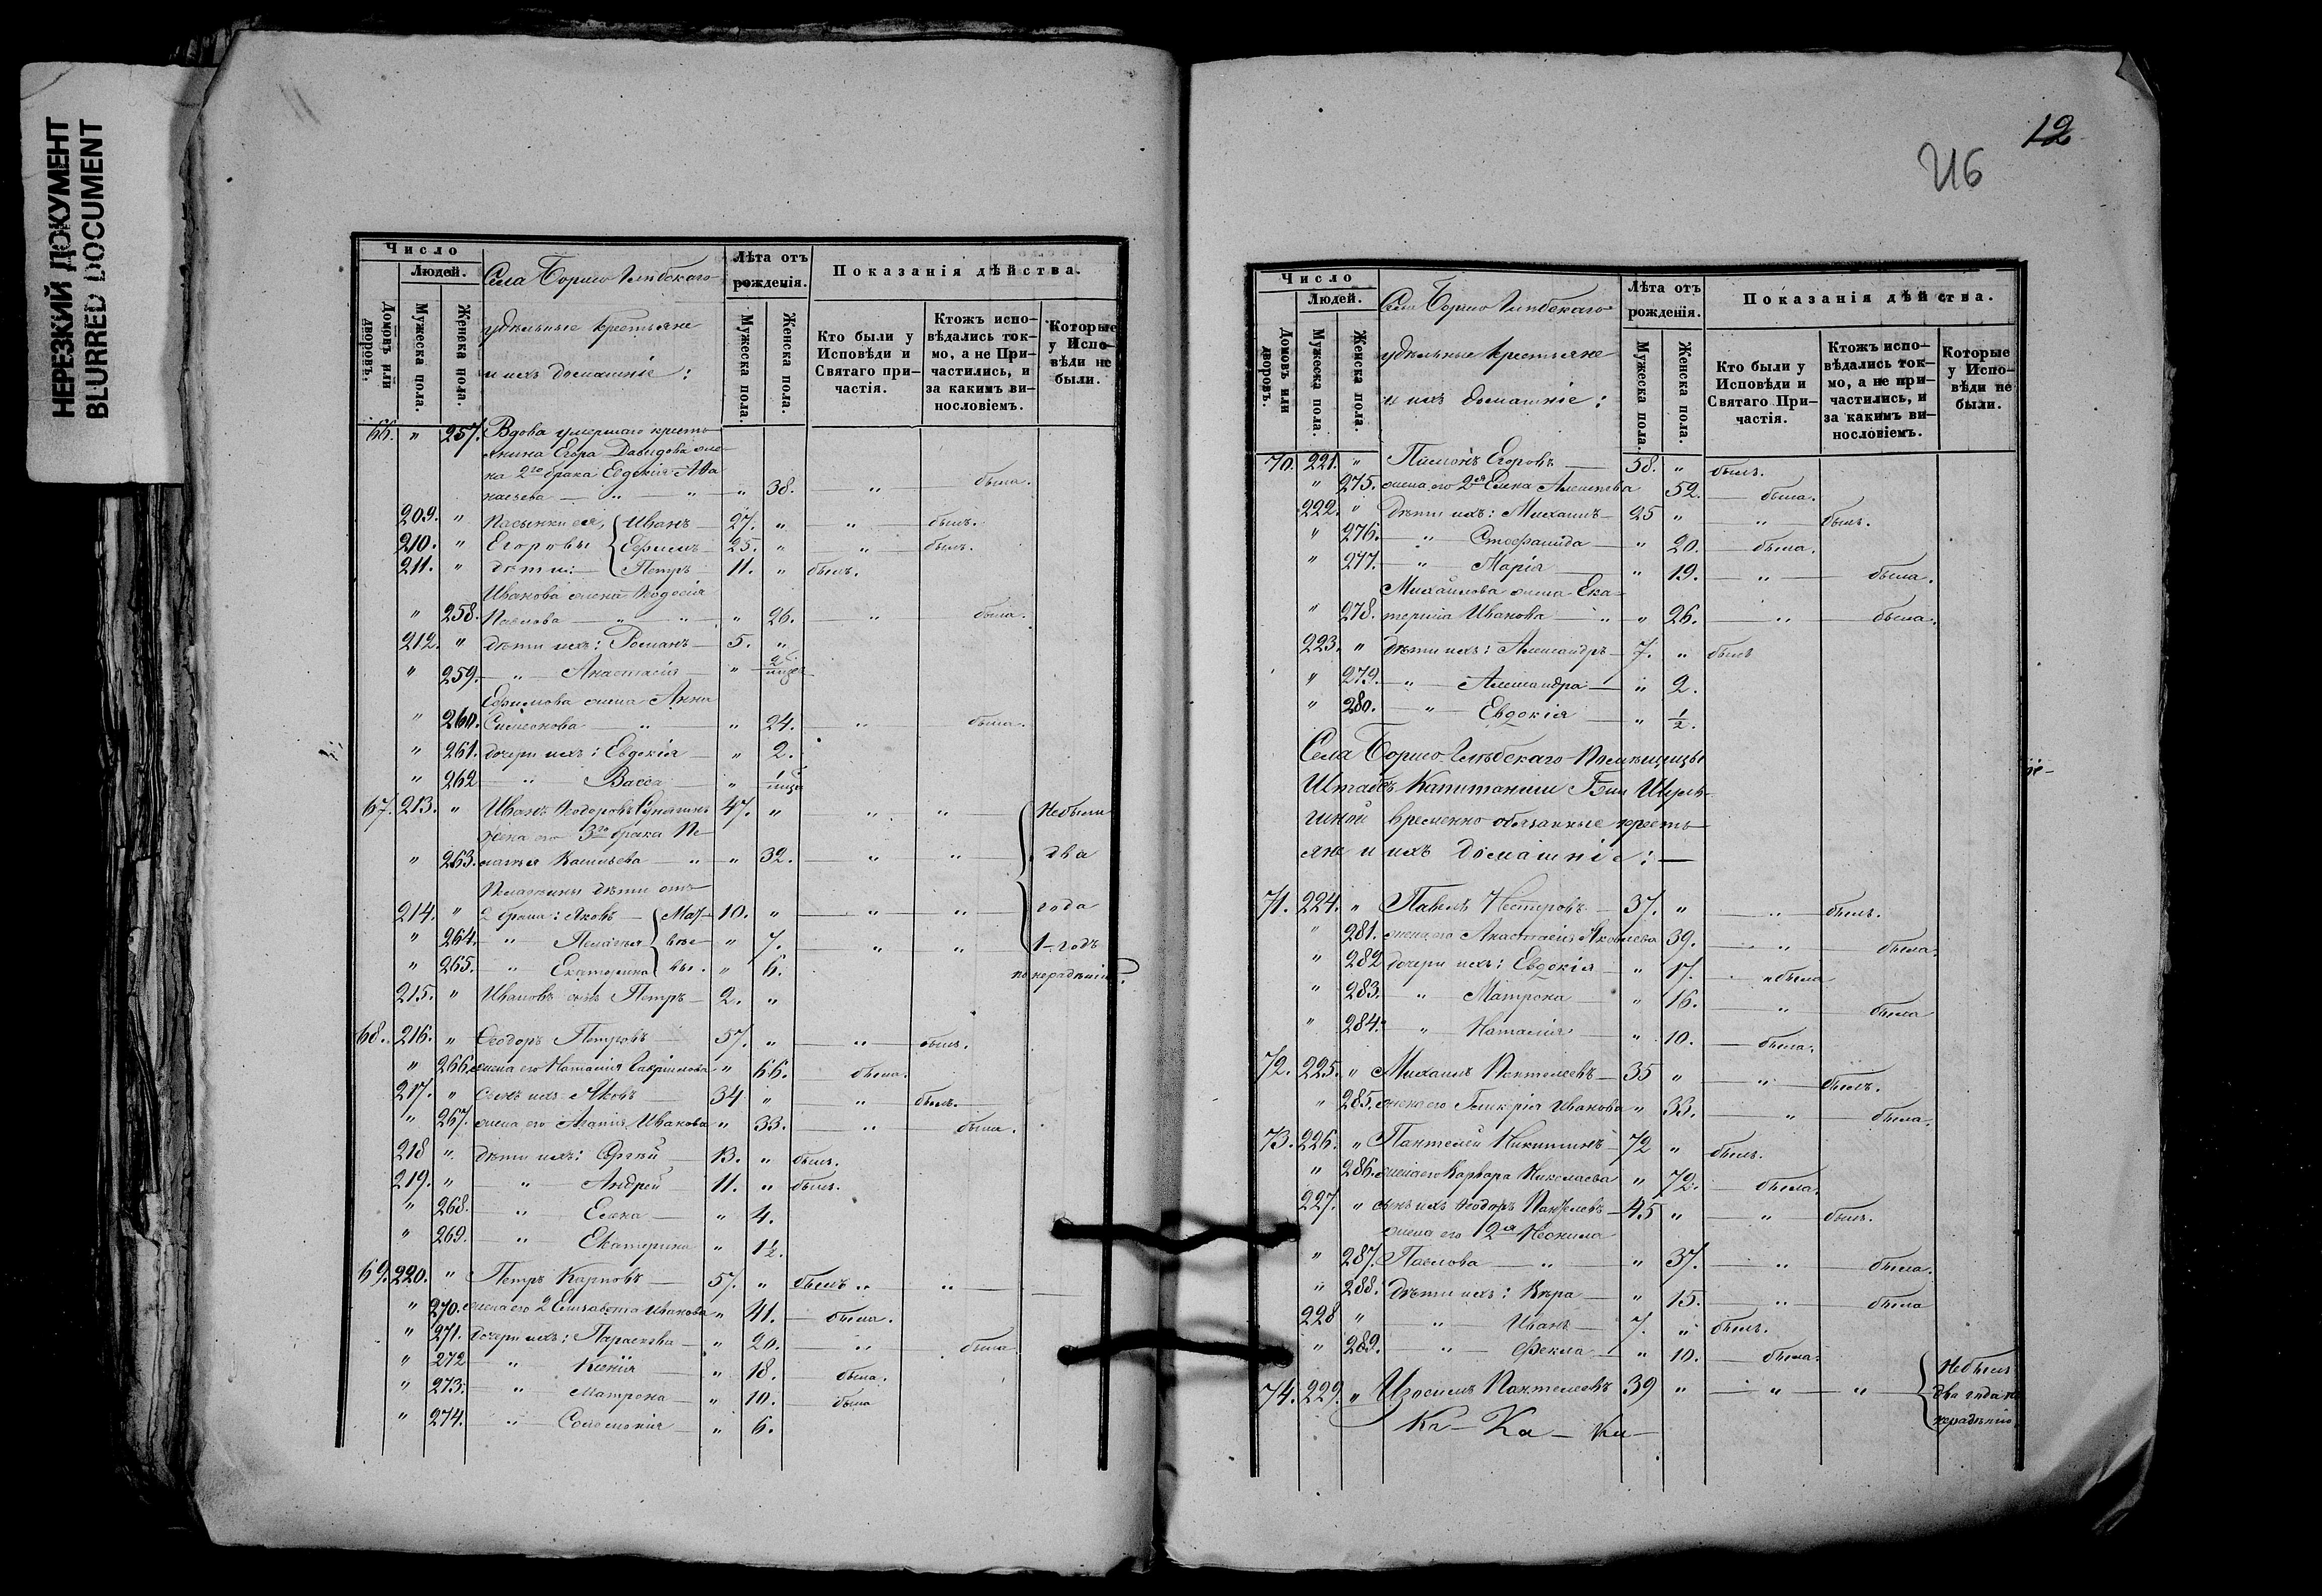 НЕРЕЗКИЙ ДОКУМЕНТ
BLURRED DOCUMENT
Число
Людей.
Домовъ или дворовъ.
Мужеска пола.
Женска пола.
Села Борисо Глѣбскаго
удѣльные крестьяне
и ихъ домашніе:
Лѣта отъ рожденія.
Мужеска пола.
Женска пола.
Показанія дѣйства.
Кто были у Исповѣди и Святаго причастія.
Ктожъ исповѣдались токмо, а не Причастились, и за какимъ винословіемъ.
Которые у Исповѣди не были.
66. " 257. Вдова умершаго кресть-
янина Егора Давидова же-
на 2го брака Евдокія Аѳа
насьева — " — " — " 38. " была.
209. " Пасынки ея, Иванъ — 27. " " былъ.
210. " Егоровы Ефимъ — 25. " " былъ.
211. " дѣти: Петръ 11. " былъ.
Иванова жена Ѳеодосія
" 258. Павлова — " — " — " 26. " была.
212. " дѣти ихъ: Романъ — 5. "
" 259. — " — Анастасія — "
Ефимова жена Анна
" 260. Симеонова " " 24. " была.
" 261. дочери ихъ: Евдокія — " 2.
" 262 — " — Васса — "
67. 213. " Иванъ Ѳеодоровъ 47. " " " Небыли
жена его 3го брака Пе-
" 263. лагея Васильева — " — " 32. " " два
Пелагеины дѣти отъ
214. " 2 брака: Яковъ — 10. " " " года
" 264. " Пелагея " 7. " " 1 годъ
" 265. " Екатерина " 6. по нерадѣнію.
215. " Ивановъ сынъ Петръ — 2. "
68. 216. " Ѳеодоръ Петровъ 57. " " былъ.
" 266. жена его Наталія Гавріилова " 66. была.
217. " сынъ ихъ Яковъ 34 " " былъ.
" 267. жена его Агапія Иванова " 33. " была.
218 " дѣти ихъ: Сергѣй — 13. " былъ.
219. " — " — Андрей — 11. " былъ.
" 268. " Елена — " 4.
" 269. " Екатерина " 1½.
69. 220. " Петръ Карповъ — 57. " былъ " "
" 270. жена его 2 Елизавета Иванова " 41. — была.
" 271. дочери ихъ: Параскева — " 20. " была
" 272 " Ксенія " 18. была.
" 273. " Матрона — " 10. была
" 274. " Соломонія — " 6.
12
216
Число
Людей.
Домовъ или дворовъ.
Мужеска пола.
Женска пола.
Села Борисо Глѣбскаго
удѣльные крестьяне
и ихъ домашніе:
Лѣта отъ рожденія.
Мужеска пола.
Женска пола.
Показанія дѣйства.
Кто были у Исповѣди и Святаго Причастія.
Ктожъ исповѣдались токмо, а не причастились, и за какимъ винословіемъ.
Которые у Исповѣди не были.
70. 221. " Пименъ Егоровъ — 58. " былъ.
" 275. жена его 2я Елена Алексѣева 52. — была.
222. " Дѣти ихъ: Михаилъ — 25 " — " — былъ.
" 276. — " — Стефанида — " 20. — была.
" 277. — " — Марія — " 19. — " — была.
Михаилова жена Ека-
" 278. терина Иванова — " " 26. — " — была.
223. " дѣти ихъ: Александръ — 7. " былъ
" 279. — " — Александра — " 2.
" 280. — " — Евдокія — " ½.
Села Борисо-Глѣбскаго Помѣщицы
Штабсъ Капитанши
временно обязанные кресть-
яне и ихъ домашніе: —
71. 224. " Павелъ Нестеровъ — 37. " — " — былъ.
" 281. жена его Анастасія Яковлева 39. — " — была.
" 282 дочери ихъ: Евдокія — " 17. " была
" 283. — " — Матрона — " 16. — " — была
" 284. — " — Наталія — " 10. — была.
72. 225. " Михаилъ Пантелеевъ — 35 " — " — былъ.
" 285. жена его Гликерія Иванова " 33. — " — была.
73. 226. " Пантелей Никитинъ — 72 " былъ.
" 286. жена его Варвара Николаева " 72. — была.
227. " сынъ ихъ Ѳеодоръ Пантелеевъ — 45 " — " — былъ.
жена его 2я Неонила
" 287. Павлова — " — " 37. — " — была.
" 288. Дѣти ихъ: Вѣра — " 15. — " — была
228 " — " — Иванъ — 7. " былъ.
" 289. — " — Фекла — " 10. — была.
74. 229. " Изосимъ Пантелеевъ 39 " — " — " Небылъ
два года по
нерадѣнію.
Ка — Ка — Ка —